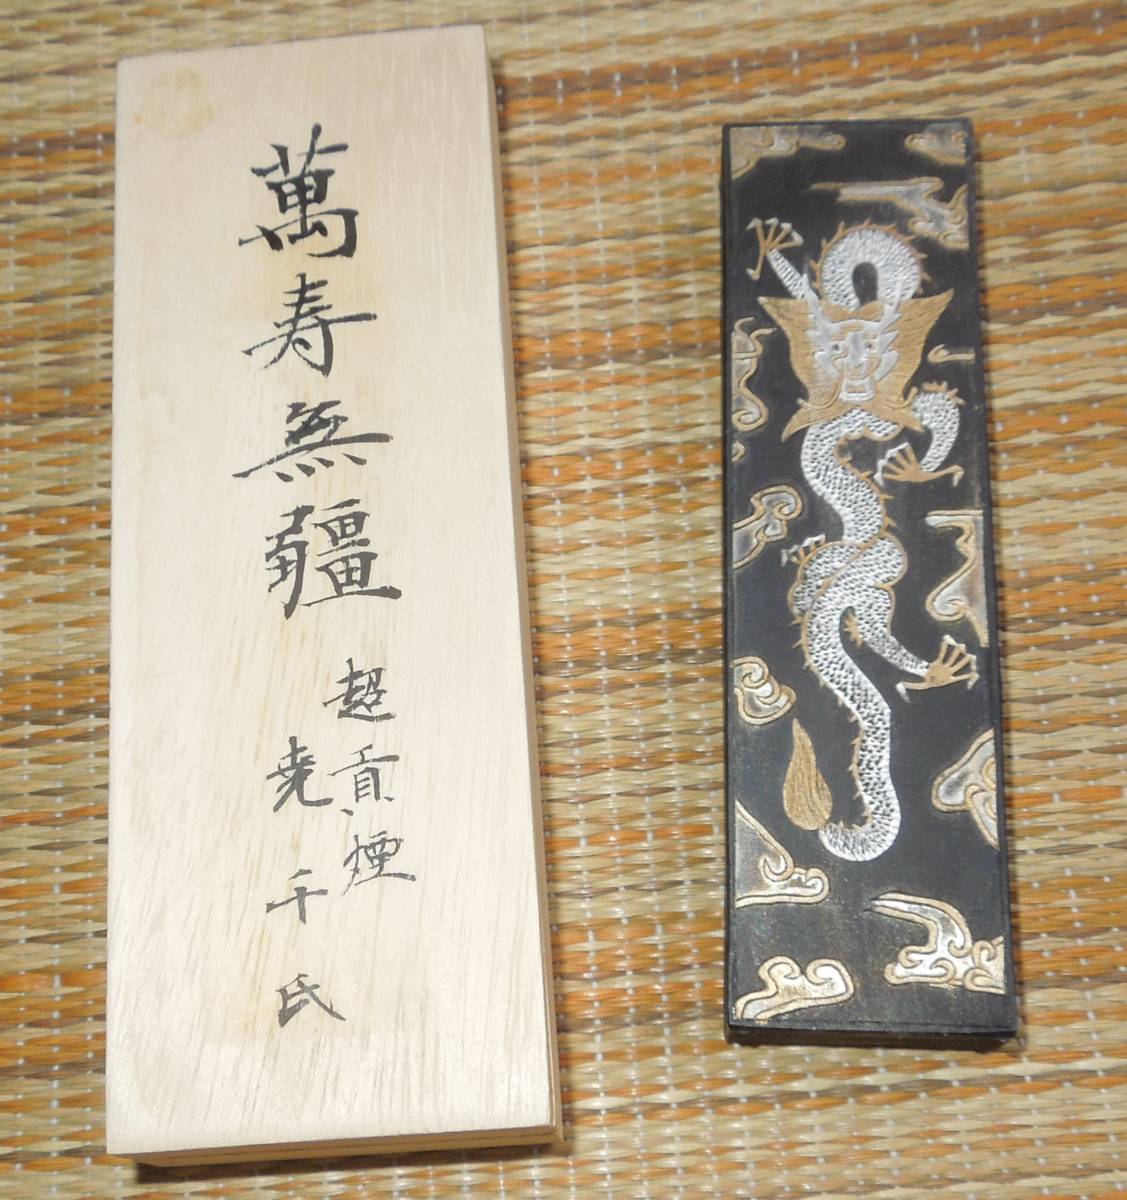 萬寿無疆
超貢煙
尭千氏